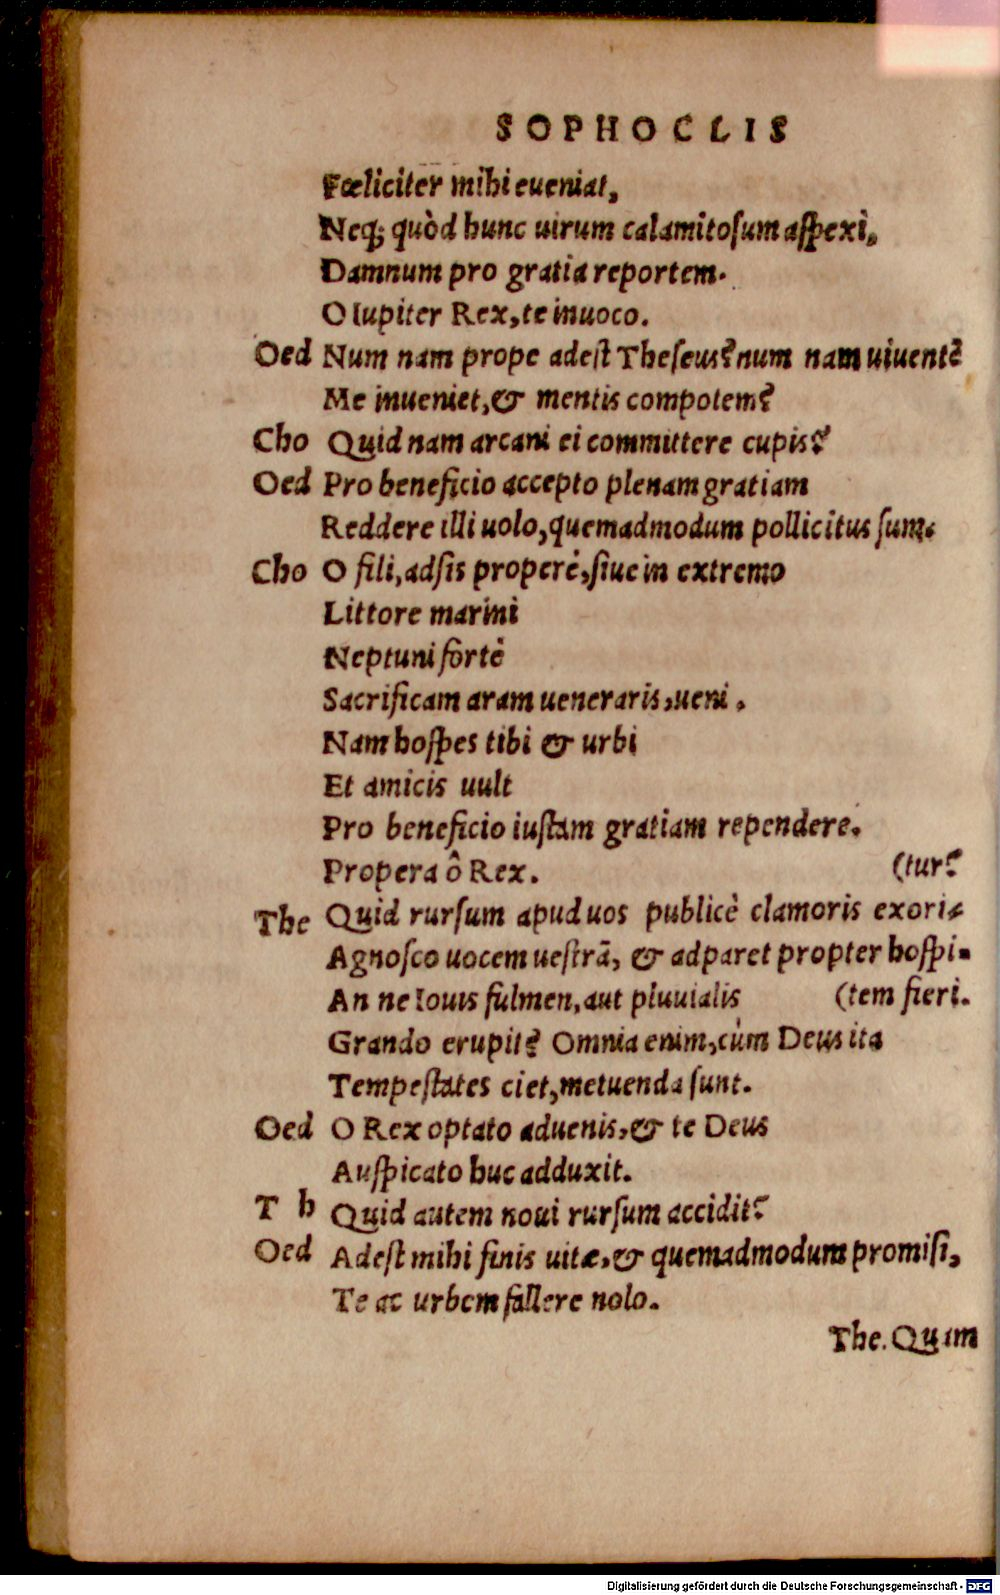 SOPHOCLIS
Fœliciter mihi eueniat,
Neq; quòd hunc uirum calamitosum aspexi,
Damnum pro gratia reportem.
O Iupiter Rex, te inuoco.
Oed Num nam prope adest Theseus? num nam uiuentẽ
Me inueniet, & mentis compotem?
Cho Quid nam arcani ei committere cupis?
Oed Pro beneficio accepto plenam gratiam
Reddere illi uolo, quemadmodum pollicitus sum.
Cho O fili, adsis properè, siue in extremo
Littore marini
Neptuni fortè
Sacrificam aram ueneraris, ueni.
Nam hospes tibi & urbi
Et amicis uult
Pro beneficio iustam gratiam rependere.
Propera ô Rex. (tur?
The Quid rursum apud uos publicè clamoris exori-
Agnosco uocem uestrã, & adparet propter hospi-
An ne Iouis fulmen, aut pluuialis (tem fieri.
Grando erupit? Omnia enim, cùm Deus ita
Tempestates ciet, metuenda sunt.
Oed O Rex optato aduenis, & te Deus
Auspicato huc adduxit.
T h Quid autem noui rursum accidit?
Oed Adest mihi finis uitæ, & quemadmodum promisi,
Te ac urbem fallere nolo.
The. Quam
Digitalisierung gefördert durch die Deutsche Forschungsgemeinschaft - DFG